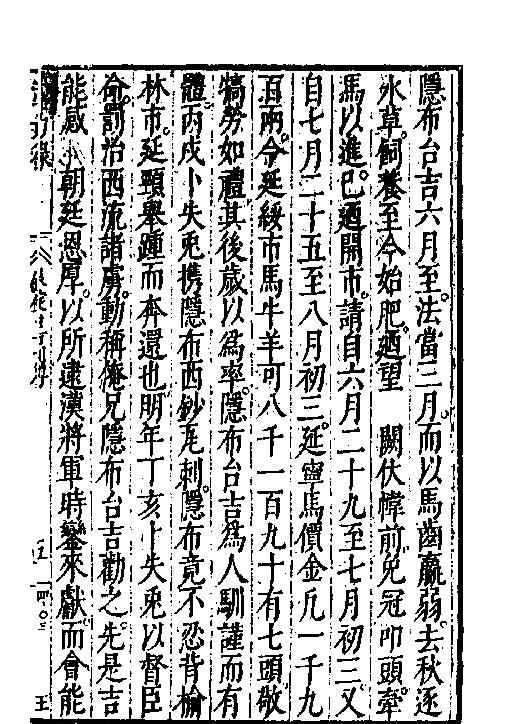 隱布台吉六月至。法當三月。而以馬齒羸弱。去秋逐
水草。飼養至今始肥。廼望　闕伏幃前。免冠叩頭。牽
馬以進。已廼開市。請自六月二十九至七月初三。又
自七月二十五至八月初三。延寧馬價金凡一千九
百兩。今延綏市馬牛羊可八千一百九十有七頭。敬
犒勞如禮。其後歲以為率。隱布台吉為人馴謹而有
體。丙戌卜失兎携隱布西鈔尾刺。隱布竟不忍背榆
林市。延頸舉踵而奔還也。明年丁亥卜失兎以督臣
命。罰治西流諸虜。動稱俺兄隱布台吉勸之。先是吉
能感 朝廷恩厚。以所逮漢將軍時鑾來獻。而會能